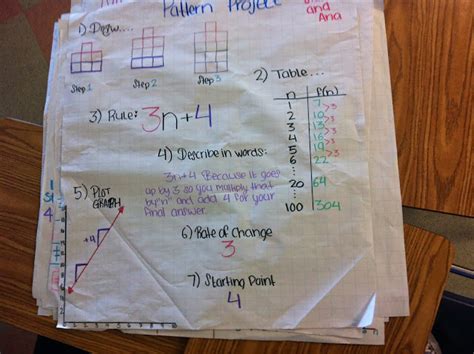 Pattern Project
and
Aria
1) Draw...
Step 1
Step 2
Step 3
2) Table...
n f(n)
1 7
2 10
3 13
4 16
5 19
6 22
20 64
100 304
>3
>3
>3
>3
>3
3) Rule: 3n+4
4) Describe in words:
3n+4 Because it goes
up by 3 so you multiply that
by "n" and add 4 for your
final answer.
5) PLOT
GRAPH
+4
6) Rate of Change
3
7) Starting Point
4